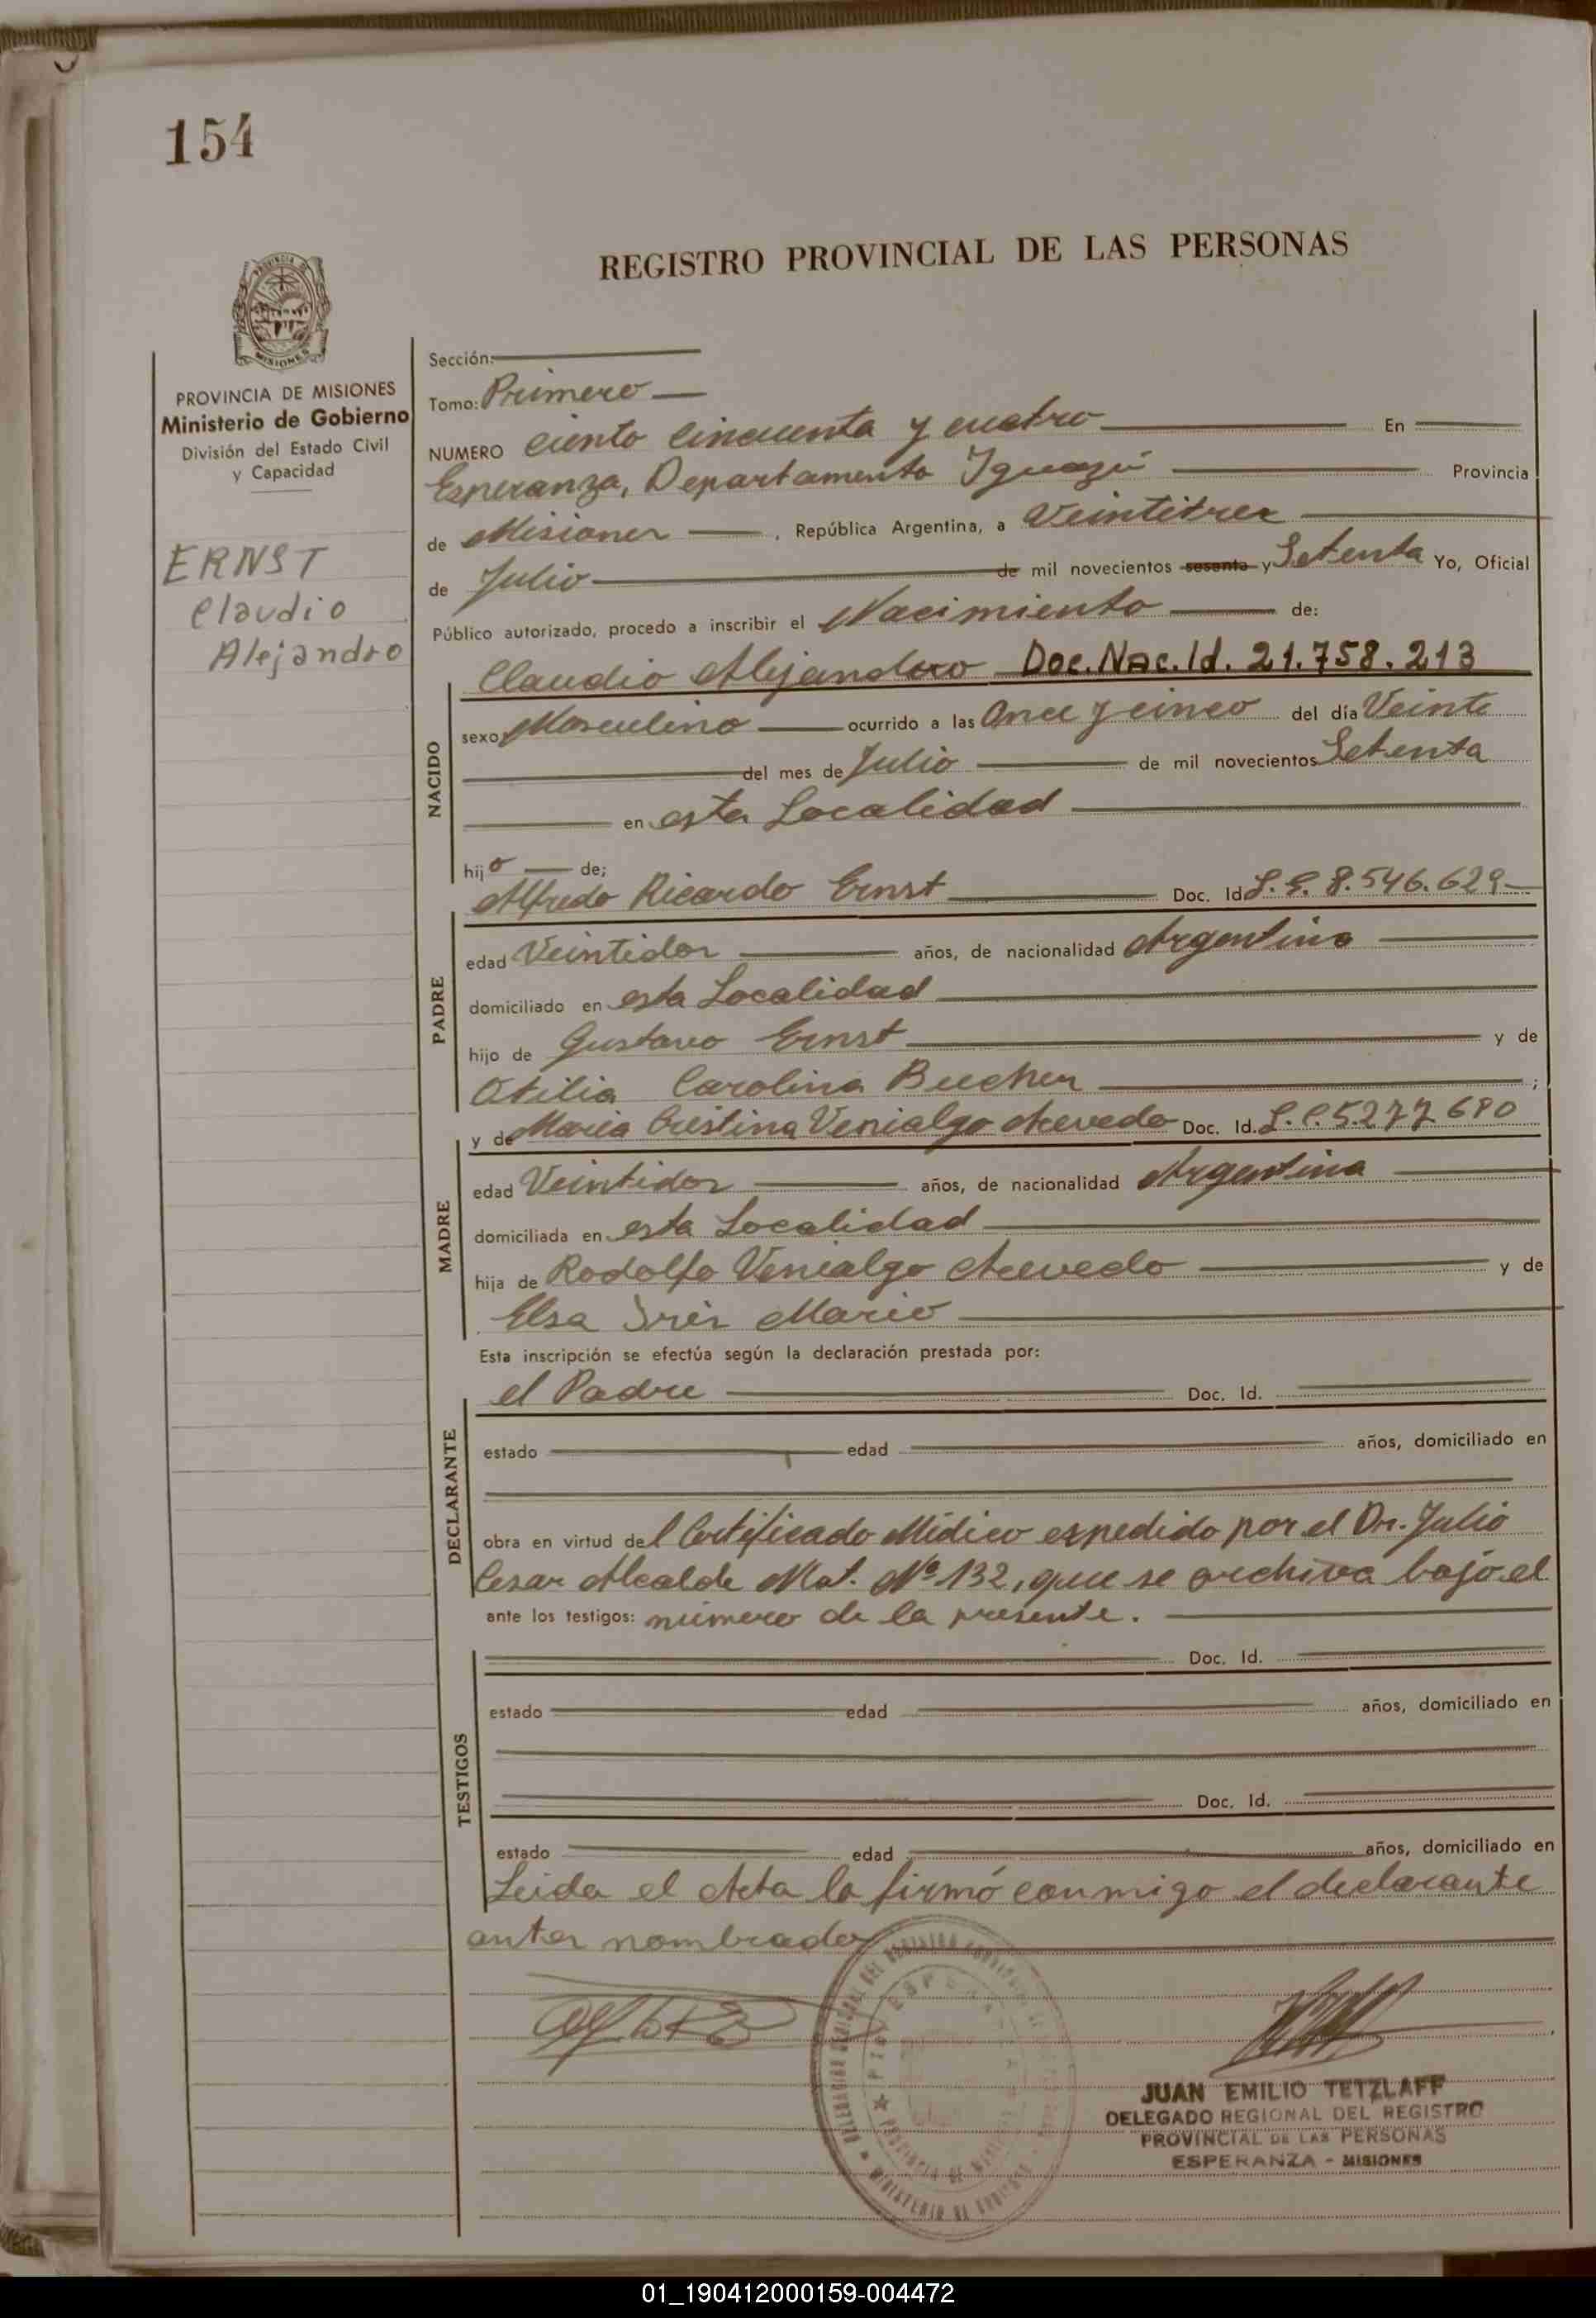 154
REGISTRO PROVINCIAL DE LAS PERSONAS
PROVINCIA DE
MISIONES
PROVINCIA DE MISIONES
Ministerio de Gobierno
División del Estado Civil
y Capacidad
ERNST
Claudio
Alejandro
Sección:
Tomo: Primero
NUMERO ciento cincuenta y cuatro En
Esperanza, Departamento Iguazú Provincia
de Misiones , República Argentina, a Veintitres
de Julio de mil novecientos sesenta y Setenta Yo, Oficial
Público autorizado, procedo a inscribir el Nacimiento de:
Claudio Alejandro Doc. Nac. Id. 21.758.213
NACIDO
sexo Masculino ocurrido a las Once y cinco del día Veinte
del mes de Julio de mil novecientos Setenta
en esta Localidad
hijo de;
Alfredo Ricardo Ernst Doc. Id. L.E. 8.546.629
PADRE
edad Veintidos años, de nacionalidad Argentino
domiciliado en esta Localidad
hijo de Gustavo Ernst y de
Otilia Carolina ;
y de Maria Cristina Venialgo Acevedo Doc. Id. L.C. 5.277.680
MADRE
edad Veintidos años, de nacionalidad Argentina
domiciliada en esta Localidad
hija de Rodolfo Venialgo Acevedo y de
Elsa Iris
Esta inscripción se efectúa según la declaración prestada por:
el Padre Doc. Id.
DECLARANTE
estado edad años, domiciliado en
obra en virtud del Certificado Médico espedido por el Dr. Julio
Cesar Alcalde Mat. Nº 132, que se archiva bajo el
ante los testigos: número de la presente.
TESTIGOS
Doc. Id.
estado edad años, domiciliado en
Doc. Id.
estado edad años, domiciliado en
Leida el Acta la firmó conmigo el declarante
antes nombrado
JUAN EMILIO TETZLAFF
DELEGADO REGIONAL DEL REGISTRO
PROVINCIAL DE LAS PERSONAS
ESPERANZA - MISIONES
01_190412000159-004472